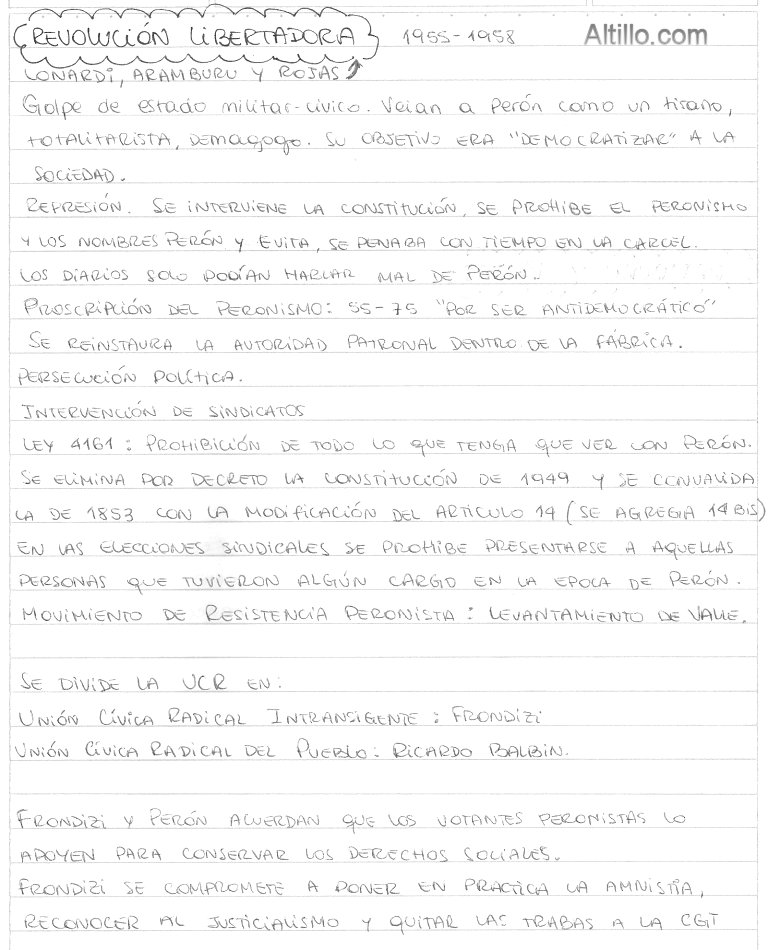 REVOLUCIÓN LIBERTADORA 1955-1958 Altillo.com
LONARDI, ARAMBURU Y ROJAS
Golpe de estado militar-cívico. Veían a Perón como un tirano,
TOTALITARISTA, DEMAGOGO. SU OBJETIVO ERA "DEMOCRATIZAR" A LA
SOCIEDAD.
REPRESIÓN. SE INTERVIENE LA CONSTITUCIÓN, SE PROHIBE EL PERONISMO
Y LOS NOMBRES PERÓN Y EVITA, SE PENABA CON TIEMPO EN LA CARCEL.
LOS DIARIOS SOLO PODÍAN HABLAR MAL DE PERÓN..
PROSCRIPCIÓN DEL PERONISMO: 55-75 "POR SER ANTIDEMOCRÁTICO"
SE REINSTAURA LA AUTORIDAD PATRONAL DENTRO DE LA FÁBRICA.
PERSECUCIÓN POLÍTICA.
INTERVENCIÓN DE SINDICATOS
LEY 4161: PROHIBICIÓN DE TODO LO QUE TENGA QUE VER CON PERÓN.
SE ELIMINA POR DECRETO LA CONSTITUCIÓN DE 1949 Y SE CONVALIDA
LA DE 1853 CON LA MODIFICACIÓN DEL ARTICULO 14 (SE AGREGA 14 BIS)
EN LAS ELECCIONES SINDICALES SE PROHIBE PRESENTARSE A AQUELLAS
PERSONAS QUE TUVIERON ALGÚN CARGO EN LA EPOCA DE PERÓN.
MOVIMIENTO DE RESISTENCIA PERONISTA: LEVANTAMIENTO DE VALLE.
SE DIVIDE LA UCR EN:
UNIÓN CÍVICA RADICAL INTRANSIGENTE: FRONDIZI
UNIÓN CÍVICA RADICAL DEL PUEBLO: RICARDO BALBIN.
FRONDIZI Y PERÓN ACUERDAN QUE LOS VOTANTES PERONISTAS LO
APOYEN PARA CONSERVAR LOS DERECHOS SOCIALES.
FRONDIZI SE COMPROMETE A PONER EN PRACTICA LA AMNISTÍA,
RECONOCER AL JUSTICIALISMO Y QUITAR LAS TRABAS A LA CGT